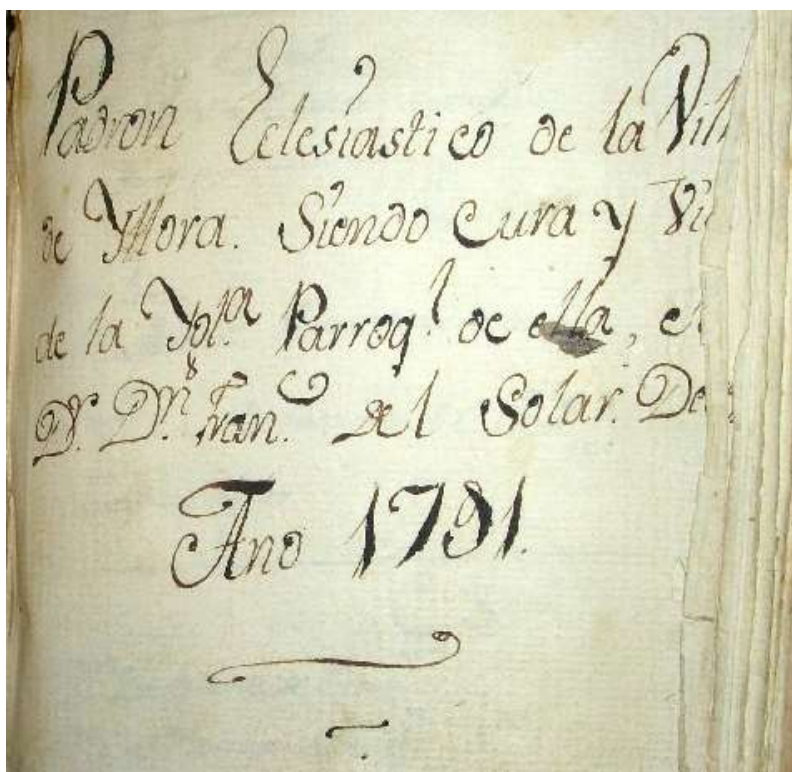 Padron Eclesiastico de la Vill
de Yllora. Siendo Cura y Vic
de la Ygl.ª Parroq.l de ella, el
D.r D.n Fran.co del Solar. De
Año 1791.